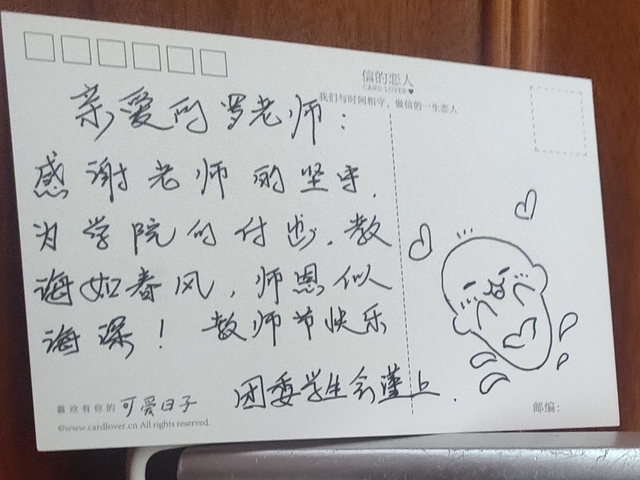 信的恋人
CARD LOVER
我们与时间相守，做信的一生恋人
亲爱的罗老师：
感谢老师的坚守，
为学院的付出，教
海如春风，师恩似
海深！教师节快乐
团委学生会谨上．
喜欢有你的 可爱日子
©www.cardlover.cn All rights reserved.
邮编：